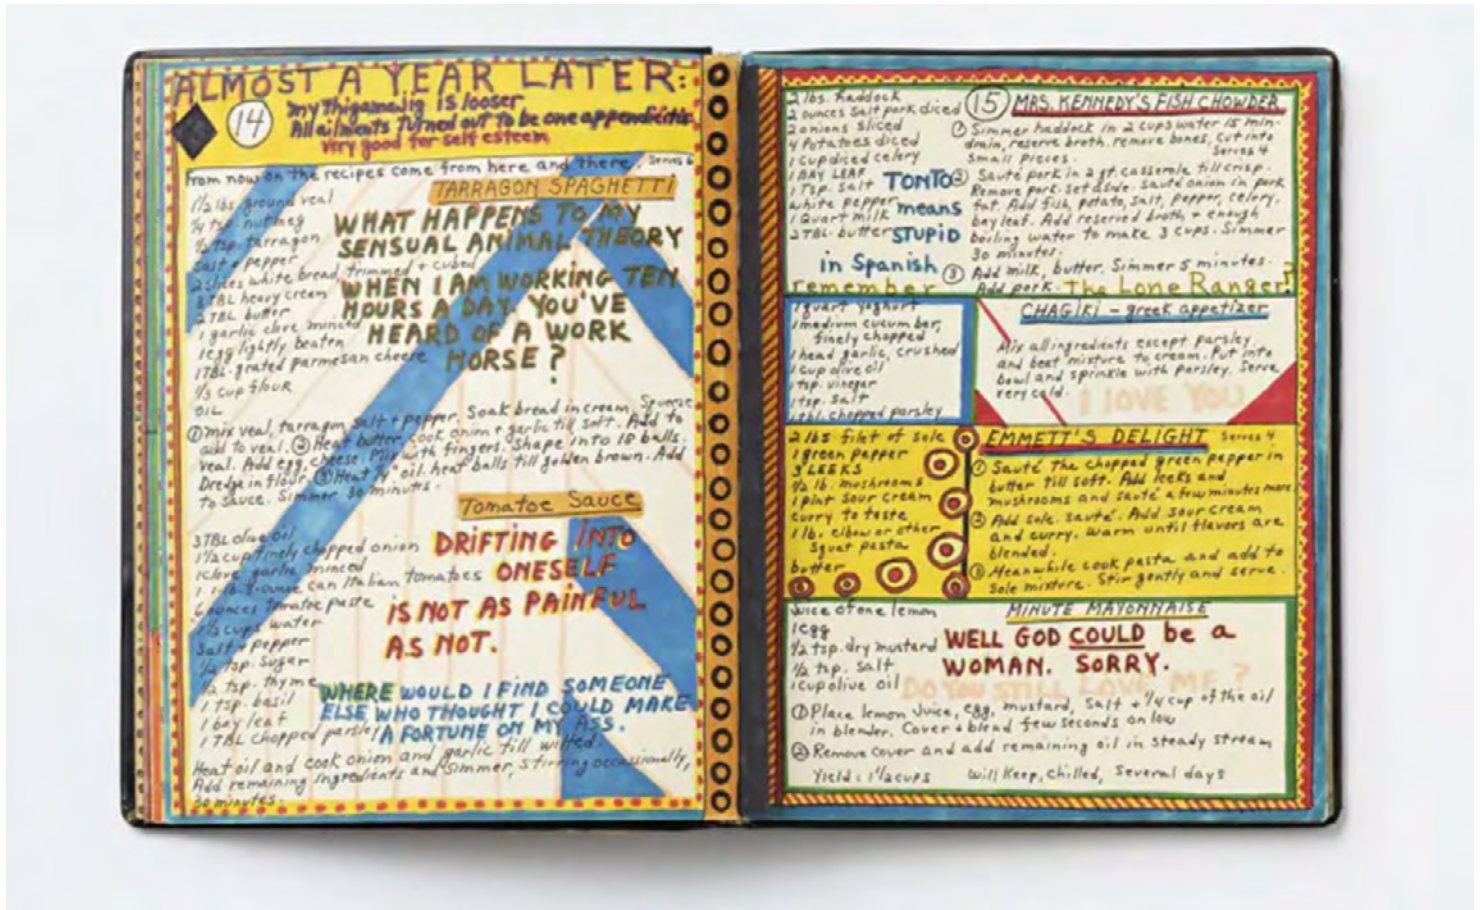 ALMOST A YEAR LATER:
14
my Thigamajig is looser
All ailments Turned out to be one appendicitis
very good for self esteem
From now on the recipes come from here and there. Serves 6
TARRAGON SPAGHETTI
1 1/2 lbs ground veal
1/4 tsp. nutmeg
1/2 tsp. tarragon
salt + pepper
2 slices white bread, trimmed + cubed
3 TBL heavy cream
2 TBL butter
1 garlic clove minced
1 egg lightly beaten
1 TBL. grated parmesan cheese
1/3 cup flour
OIL
WHAT HAPPENS TO MY
SENSUAL ANIMAL THEORY
WHEN I AM WORKING TEN
HOURS A DAY. YOU'VE
HEARD OF A WORK
HORSE?
① mix veal, tarragon, salt + pepper. Soak bread in cream, Squeeze
add to veal. ② Heat butter, cook onion + garlic till soft. Add to
veal. Add egg, cheese. Mix with fingers. Shape into 18 balls.
Dredge in flour. ③ Heat 1/4" oil. heat balls till golden brown. Add
to sauce. Simmer 30 minutes.
Tomatoe Sauce
3 TBL olive oil
1 1/2 cup finely chopped onion
1 clove garlic minced
can Italian tomatoes
6 ounces tomatoe paste
1 1/2 cups water
Salt + pepper
1/2 tsp. sugar
1/2 tsp. thyme
1 tsp. basil
1 bay leaf
1 TBL chopped parsley
DRIFTING INTO
ONESELF
IS NOT AS PAINFUL
AS NOT.
WHERE WOULD I FIND SOMEONE
ELSE WHO THOUGHT I COULD MAKE
A FORTUNE ON MY ASS.
Heat oil and cook onion and garlic till wilted.
Add remaining ingredients and simmer, stirring occasionally,
30 minutes.
15 MRS. KENNEDY'S FISH CHOWDER
2 lbs. haddock
2 ounces salt pork diced
2 onions sliced
4 Potatoes diced
1 cup diced celery
1 BAY LEAF
1 Tsp. salt
white pepper
1 Quart milk
2 TBL. butter
TONTO
means
STUPID
in Spanish
remember
The Lone Ranger?
① Simmer haddock in 2 cups water 15 min-
drain, reserve broth. remove bones, cut into
small pieces. Serves 4
② Sauté pork in 2 qt. casserole till crisp.
Remove pork. Set aside. sauté onion in pork
fat. Add fish, potato, salt, pepper, celery,
bay leaf. Add reserved broth + enough
boiling water to make 3 cups. Simmer
30 minutes.
③ Add milk, butter. Simmer 5 minutes.
Add pork.
CHAGIKI - greek appetizer
1 quart yoghurt
1 medium cucumber,
finely chopped
1 head garlic, crushed
1 cup olive oil
1 tsp. vinegar
1 tsp. salt
1 tbl. chopped parsley
Mix all ingredients except parsley
and beat mixture to cream. Put into
bowl and sprinkle with parsley. Serve
very cold.
I LOVE YOU
EMMETT'S DELIGHT Serves 4
2 lbs filet of sole
1 green pepper
3 LEEKS
1/2 lb. mushrooms
1 pint sour cream
curry to taste
1 lb. elbow or other
squat pasta
butter
① Sauté the chopped green pepper in
butter till soft. Add leeks and
mushrooms and sauté a few minutes more.
② Add sole. sauté. Add sour cream
and curry. warm until flavors are
blended.
③ Meanwhile cook pasta and add to
sole mixture. Stir gently and serve.
MINUTE MAYONNAISE
Juice of one lemon
1 egg
1/2 tsp. dry mustard
1/2 tsp. salt
1 cup olive oil
WELL GOD COULD be a
WOMAN. SORRY.
DO YOU STILL LOVE ME?
① Place lemon juice, egg, mustard, salt + 1/4 cup of the oil
in blender. Cover + blend few seconds on low
② Remove cover and add remaining oil in steady stream
Yield: 1 1/2 cups will keep, chilled, several days